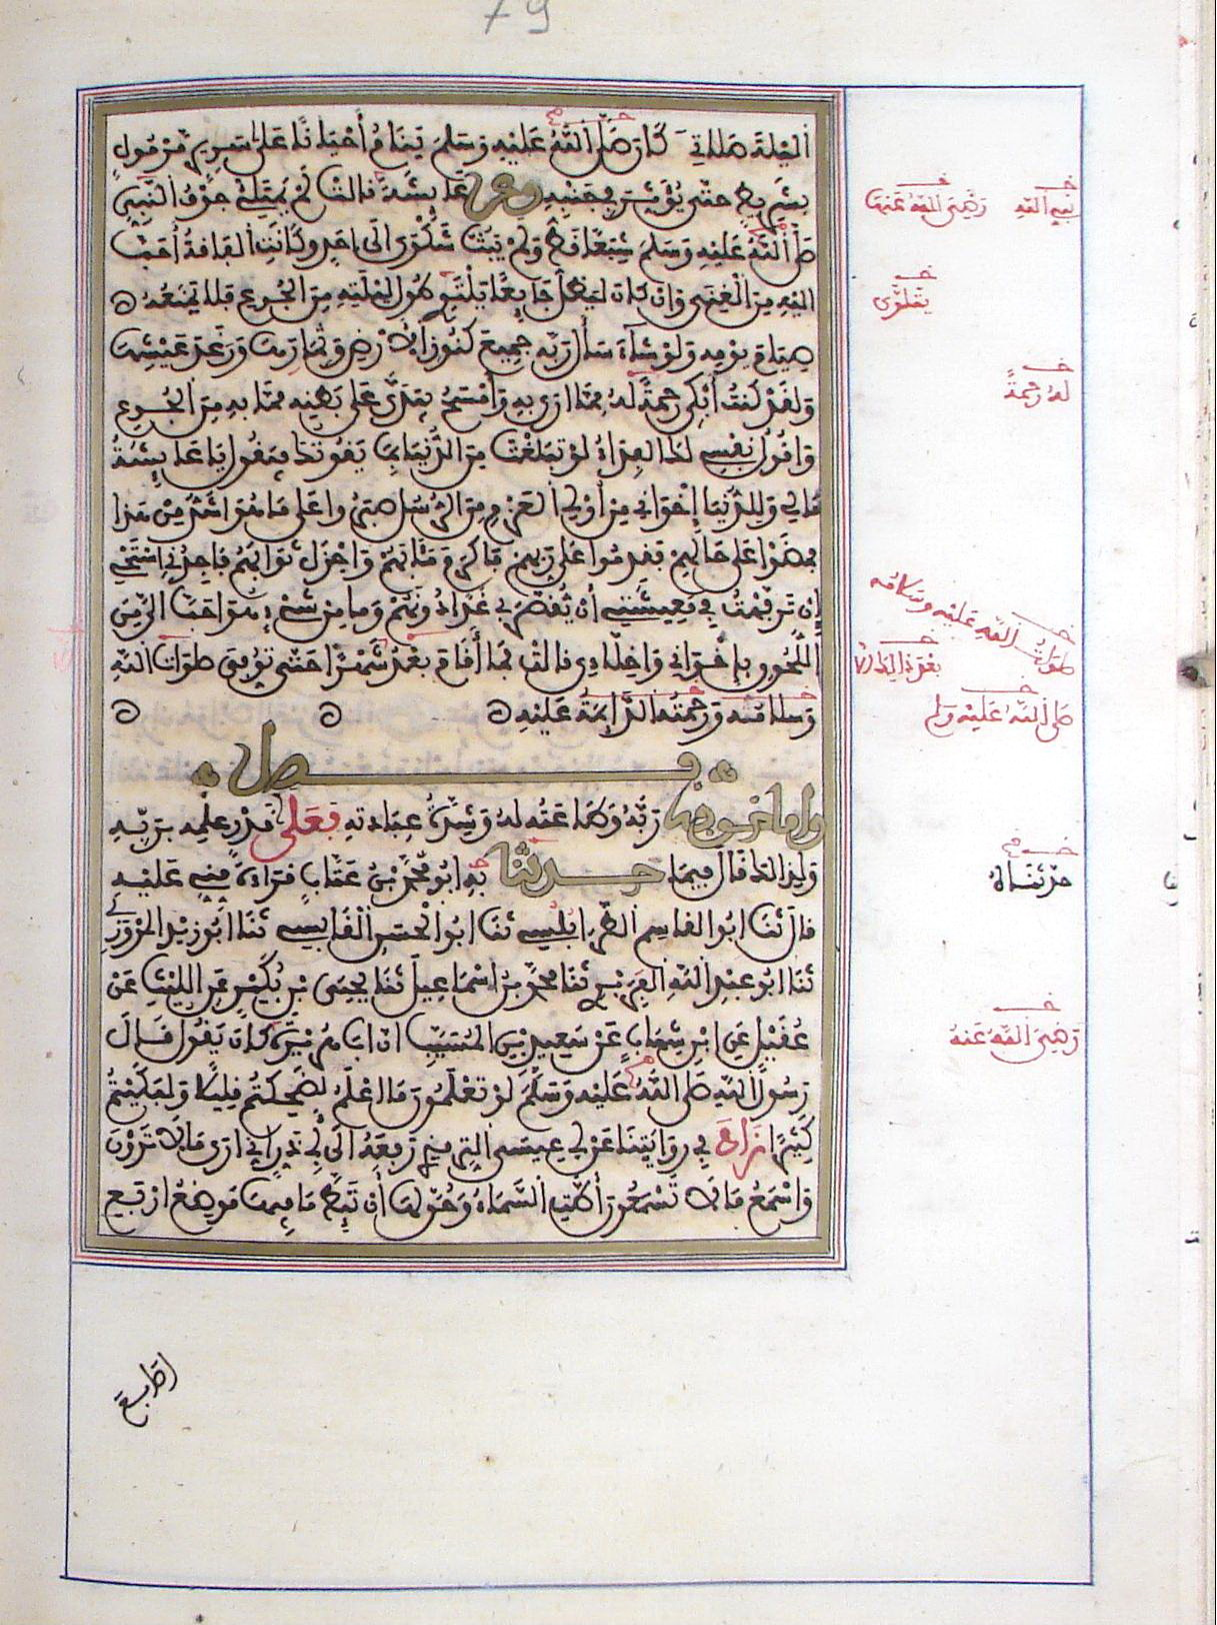 79
الليلة صلاتي كان صلى الله عليه وسلم ينام أحيانا على سرير مرمول
بشريط حتى يؤثر في جنبه وعن عائشة قالت لم يمتلئ جوف النبي
صلى الله عليه وسلم شبعا قط ولم يبث شكوى إلى احد وكانت الفاقة أحب
اليه من الغنى وان كان ليظل جائعا يلتوي طول ليلته من الجوع فلا يمنعه
صيام يومه ولو شاء سأل ربه جميع كنوز الارض وثمارها ورغد عيشها
ولقد كنت أبكي رحمة له مما ارى به وأمسح بيدي على بطنه مما به من الجوع
واقول نفسي لك الفداء لو تبلغت من الدنيا بما يقوتك فيقول يا عائشة
ما لي وللدنيا إخواني من أولي العزم من الرسل صبروا على ما هو اشد من هذا
فمضوا على حالهم فقدموا على ربهم فاكرم مئابهم واجزل ثوابهم فاجدني استحي
ان ترفهت في معيشتي أن يقصر بي غدا دونهم وما من شيء هو احب الي من
اللحوق بإخواني واخلاءي قالت فما أقام بعد شهرا حتى توفي صلوات الله
وسلامه ورحمته الدائمة عليه
فصل
واما خوفه ربه وطاعته له وشدة عبادته فعلى قدر علمه بربه
ولذالك قال فيما حدثنا به ابو محمد بن عتاب قراءة مني عليه
قال ثنا ابو القاسم الطرابلسي ثنا ابو الحسن القابسي ثنا ابو زيد المروزي
ثنا ابو عبد الله الفربري ثنا محمد بن اسماعيل ثنا يحيى بن بكير عن الليث عن
عقيل عن ابن شهاب عن سعيد بن المسيب ان ابا هريرة كان يقول قال
رسول الله صلى الله عليه وسلم لو تعلمون ما اعلم لضحكتم قليلا ولبكيتم
كثيرا زاد في روايتنا عن ابي عيسى الترمذي رفعه الى ابي ذر اني ارى ما لا ترون
واسمع ما لا تسمعون أطت السماء وحق لها أن تئط ما فيها موضع اربع
نبي الله
رضي الله عنها
يتلوى
له رحمة
صلوات الله عليه وسلامه
بعد ذالك الا
صلى الله عليه وسلم
حدثناه
رضي الله عنه
اصابع